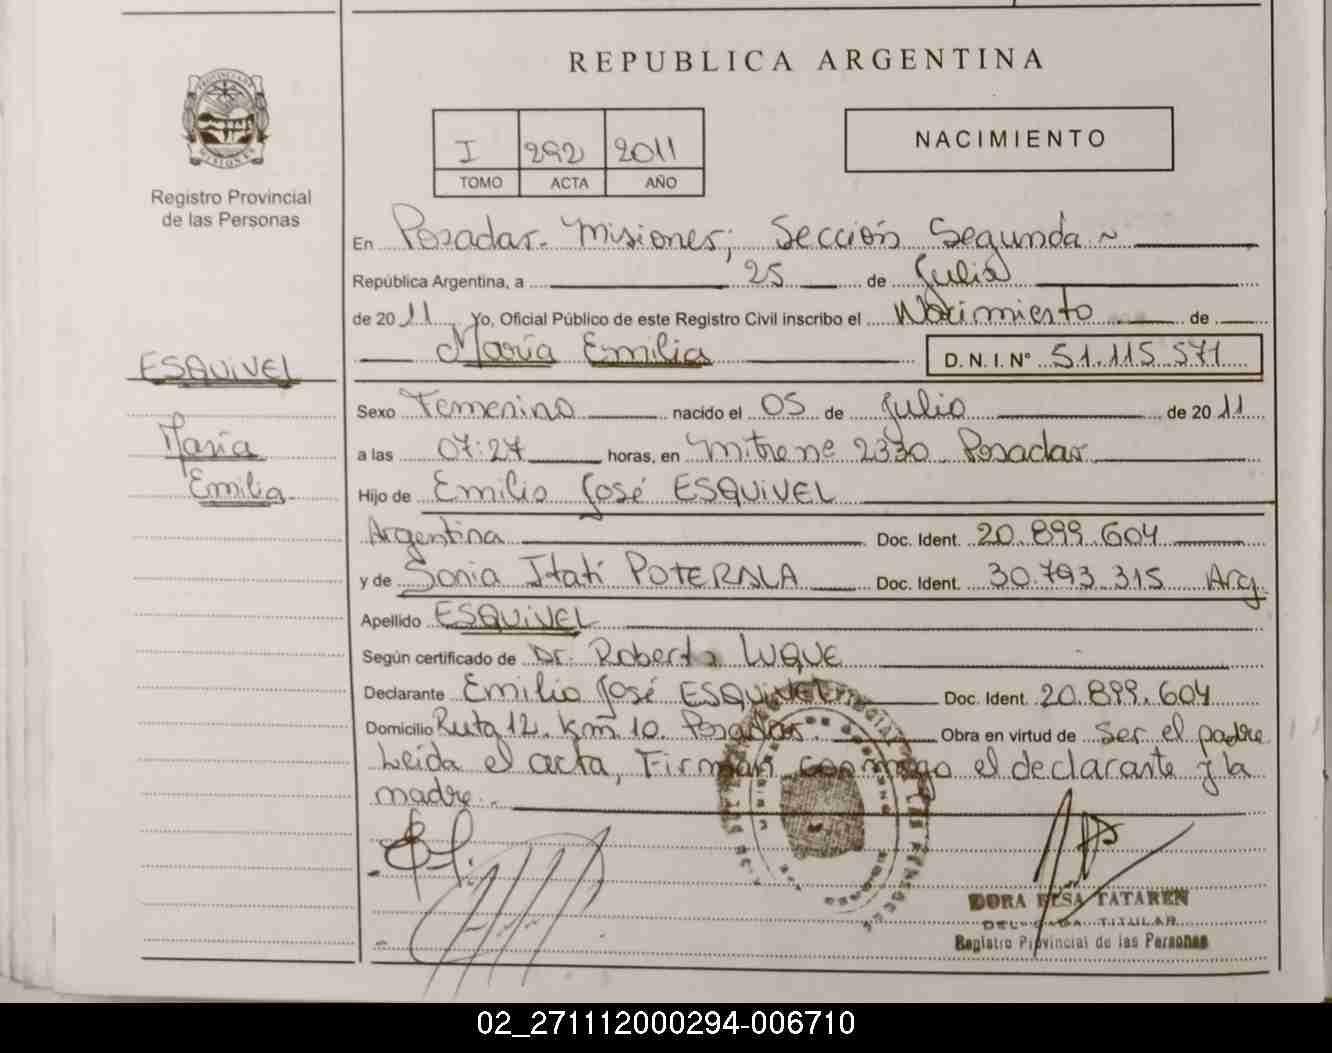 REPUBLICA ARGENTINA
PROVINCIA DE MISIONES
Registro Provincial
de las Personas
I 292 2011
TOMO ACTA AÑO
NACIMIENTO
En Posadas - Misiones; Sección Segunda ~
República Argentina, a 25 de Julio
de 2011 Yo, Oficial Público de este Registro Civil inscribo el Nacimiento de
María Emilia D. N. I. N° 51.115.571
ESQUIVEL
María
Emilia
Sexo Femenino nacido el 05 de Julio de 2011
a las 07:27 horas, en Mitre nº 2330 Posadas
Hijo de Emilio José ESQUIVEL
Argentina Doc. Ident. 20.899.604
y de Sonia Itatí Doc. Ident. 30.793.315 Arg.
Apellido ESQUIVEL
Según certificado de Dr. Roberto LUQUE
Declarante Emilio José ESQUIVEL Doc. Ident. 20.899.604
Domicilio Ruta 12. Km 10. Posadas. Obra en virtud de Ser el padre
Leida el acta, Firman conmigo el declarante y la
madre.
DORA ELSA TATAREN
DELEGADA TITULAR
Registro Provincial de las Personas
02_271112000294-006710